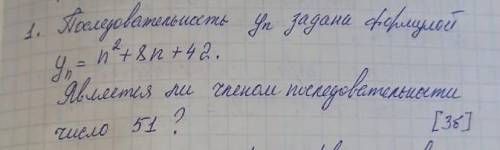 1. Последовательность yn задана формулой
yn = n²+8n+42.
Является ли членом последовательности
число 51 ? [3б]